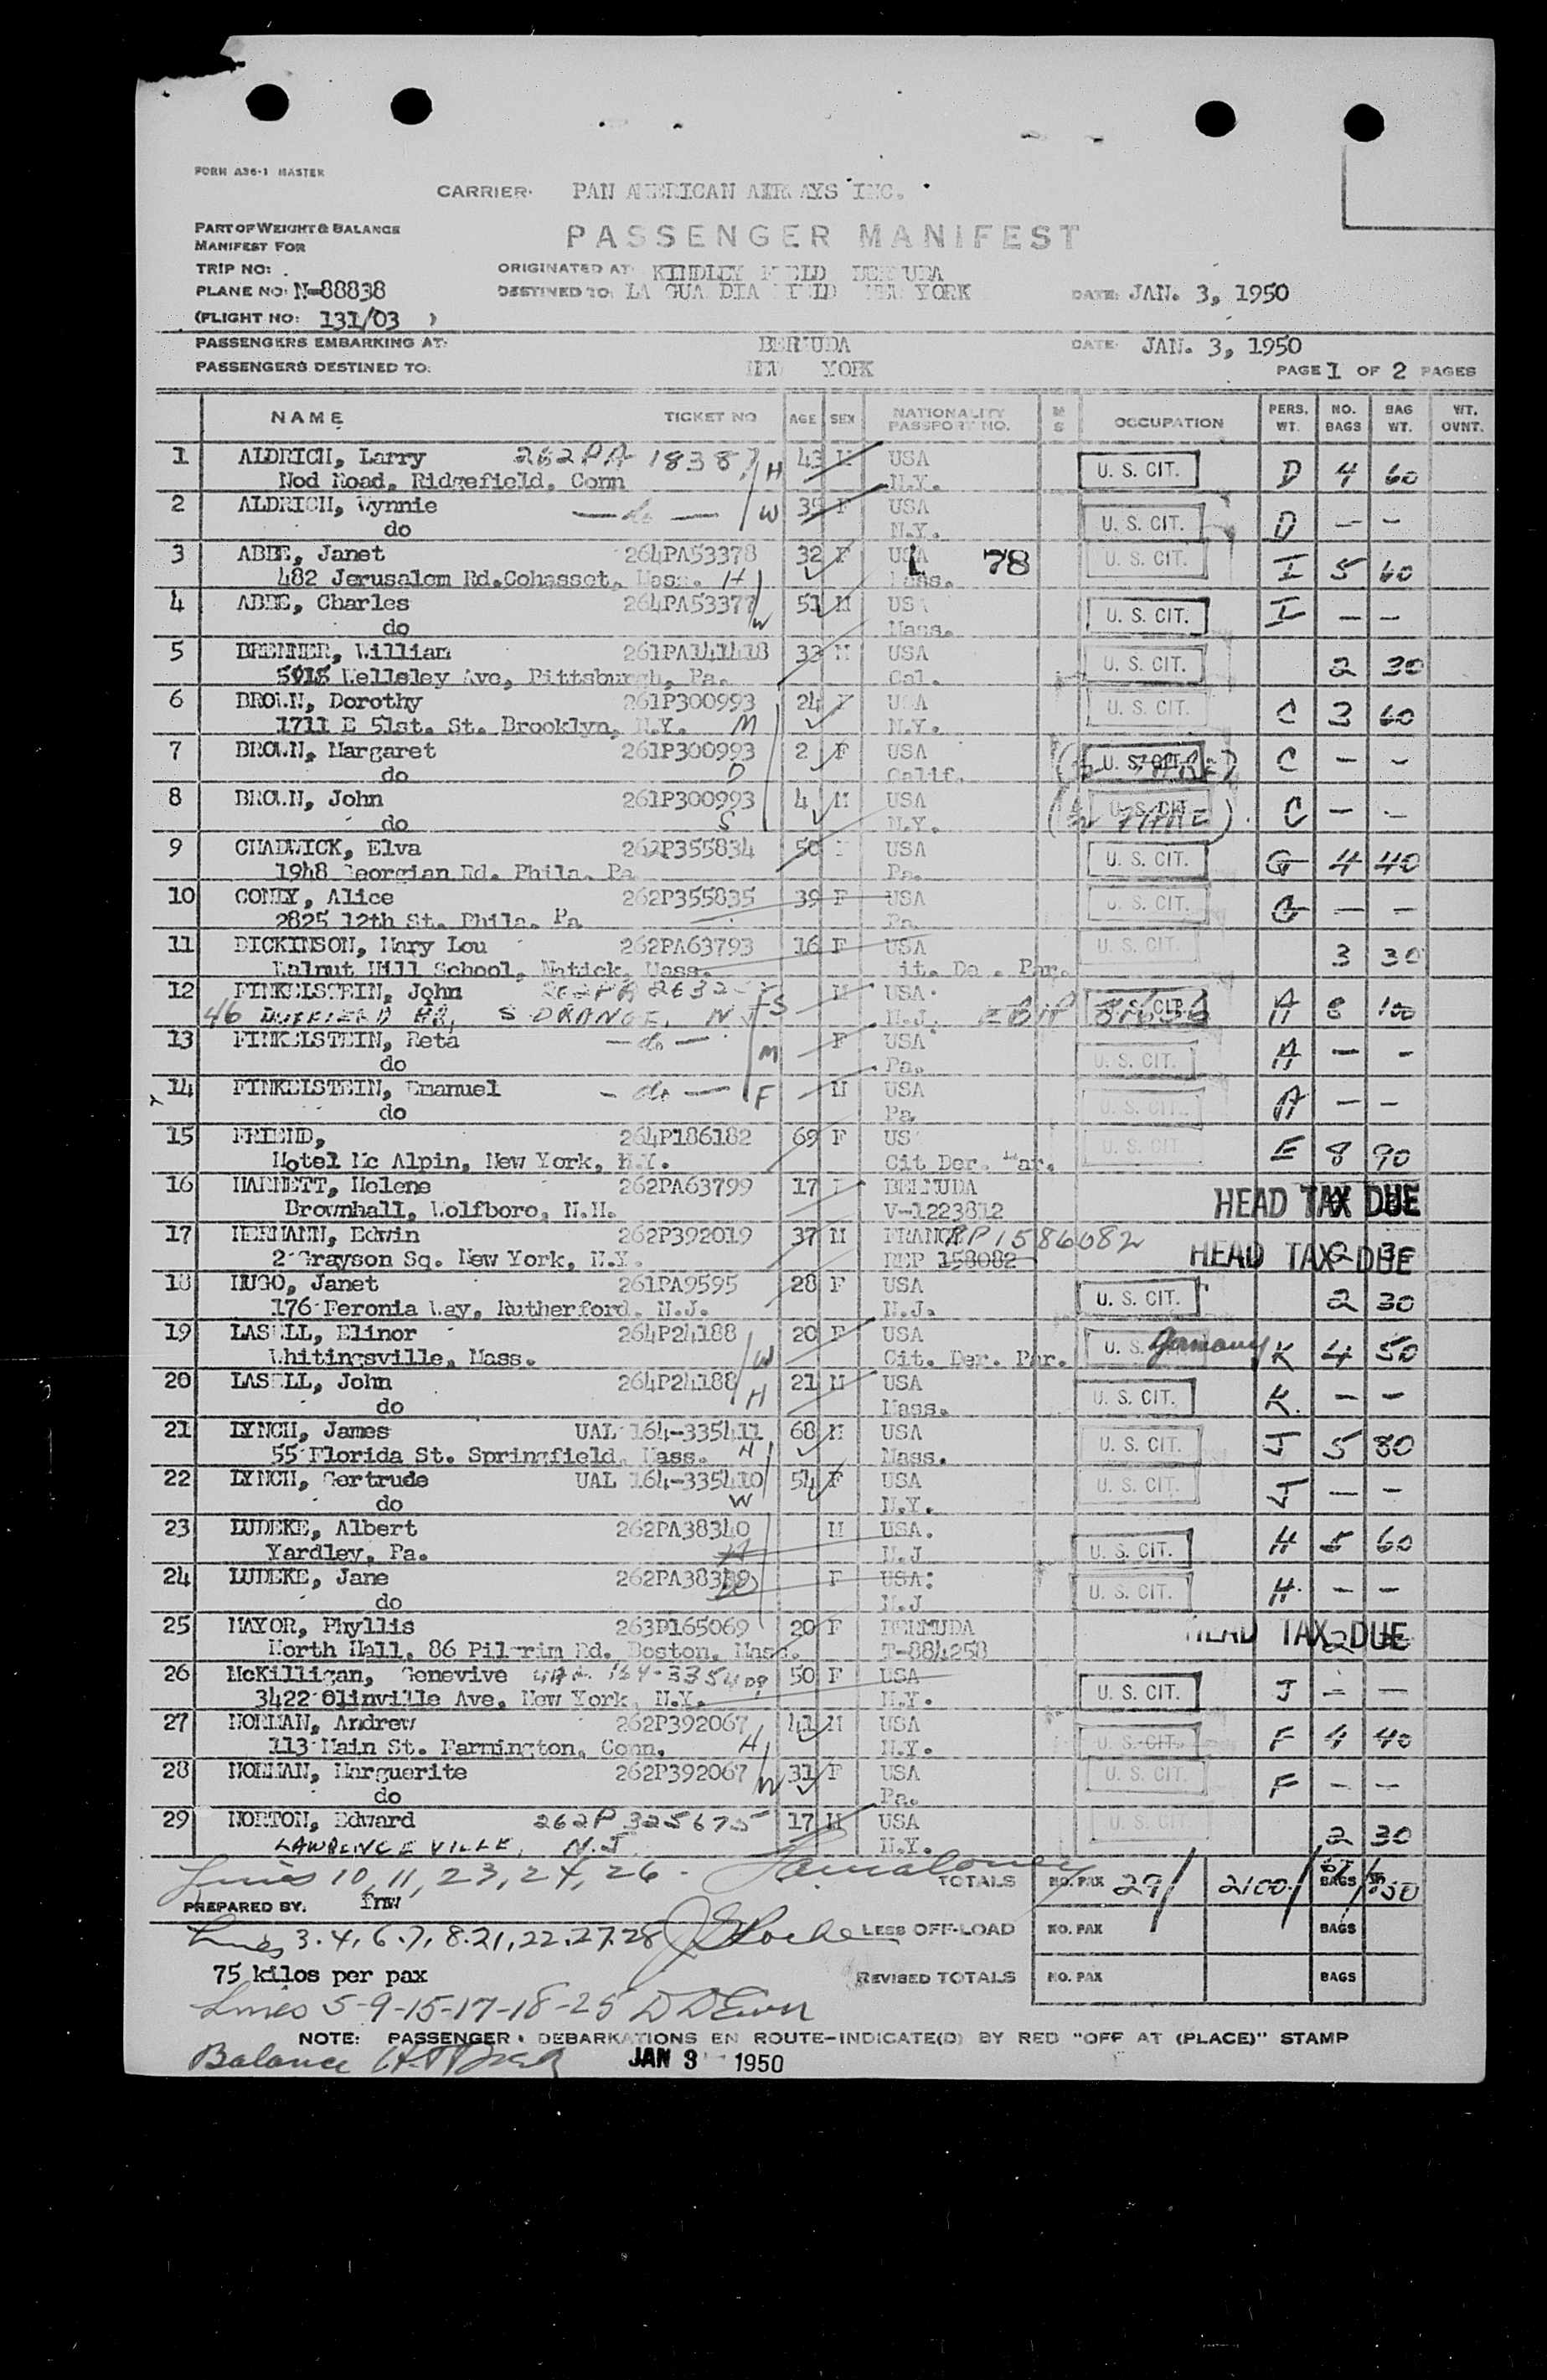 FORM A36-1 MASTER
CARRIER: PAN AMERICAN AIRWAYS INC.
PART OF WEIGHT & BALANCE
MANIFEST FOR
PASSENGER MANIFEST
TRIP NO:
ORIGINATED AT: KINDLEY FIELD BERMUDA
PLANE NO: N-88838
DESTINED TO: LA GUARDIA FIELD NEW YORK
DATE: JAN. 3, 1950
(FLIGHT NO: 131/03 )
PASSENGERS EMBARKING AT: BERMUDA
DATE: JAN. 3, 1950
PASSENGERS DESTINED TO: NEW YORK
PAGE 1 OF 2 PAGES
NAME TICKET NO AGE SEX NATIONALITY PASSPORT NO. M S OCCUPATION PERS. WT. NO. BAGS BAG WT. WT. OVNT.
1 ALDRICH, Larry 262PA 18387 H 43 M USA U. S. CIT. D 4 60
Nod Road, Ridgefield, Conn N.Y.
2 ALDRICH, Wynnie — do — W 39 F USA U. S. CIT. D — —
do N.Y.
3 ABEE, Janet 264PA53378 32 F USA L 78 U. S. CIT. I 5 60
482 Jerusalem Rd.Cohasset, Mass. H Mass.
4 ABEE, Charles 264PA53377 W 51 M US U. S. CIT. I — —
do Mass.
5 BRENNER, William 261PA141418 33 M USA U. S. CIT. 2 30
Wellsley Ave, Pittsburgh, Pa. Cal.
6 BROWN, Dorothy 261P300993 24 F USA U. S. CIT. C 3 60
1711 E 51st. St. Brooklyn, N.Y. M N.Y.
7 BROWN, Margaret 261P300993 2 F USA U. S. CIT. C — —
do D Calif.
8 BROWN, John 261P300993 4 M USA (½ FARE) U. S. CIT. C — —
do S N.Y.
9 CHADWICK, Elva 262P355834 50 F USA U. S. CIT. G 4 40
1948 Georgian Rd. Phila. Pa Pa.
10 CONLY, Alice 262P355835 39 F USA U. S. CIT. G — —
2825 12th St. Phila. Pa Pa.
11 DICKINSON, Mary Lou 262PA63793 16 F USA U. S. CIT. 3 30
Walnut Hill School, Natick, Mass. Cit. De . Par.
12 FINKELSTEIN, John 262PA S M USA U. S. CIT. A 8 100
46 DUFFIELD S ORANGE, N J N.J.
13 FINKELSTEIN, Reta — do — M F USA U. S. CIT. A — -
do Pa.
14 FINKELSTEIN, Emanuel — do — F M USA U. S. CIT. A — —
do Pa
15 FRIEND, 264P186182 69 F US U. S. CIT. E 8 90
Hotel Mc Alpin, New York, N.Y. Cit Der. Mar.
16 HARNETT, Helene 262PA63799 17 F BERMUDA HEAD TAX DUE
Brownhall, Wolfboro, N.H. V-1223812
17 HERMANN, Edwin 262P392019 37 M FRANCE RP1586082 HEAD TAX DUE
2 Grayson Sq. New York, N.Y. REP 158082
18 HUGO, Janet 261PA9595 28 F USA U. S. CIT. 2 30
176 Feronia Way, Rutherford, N.J. N.J.
19 LASELL, Elinor 264P24188 W 20 F USA U. S. CIT. Germany K 4 50
Whitingsville, Mass. Cit. Der. Par.
20 LASELL, John 264P24188 H 21 M USA U. S. CIT. K — —
do Mass.
21 LYNCH, James UAL 164-335411 68 M USA U. S. CIT. J 5 80
55 Florida St. Springfield, Mass. H Mass.
22 LYNCH, Gertrude UAL 164-335410 54 F USA U. S. CIT. J — —
do W N.Y.
23 LUDEKE, Albert 262PA38340 M USA. U. S. CIT. H 5 60
Yardley, Pa. H N.J
24 LUDEKE, Jane 262PA38339 F USA. U. S. CIT. H — —
do W N.J
25 MAYOR, Phyllis 263P165069 20 F BERMUDA HEAD TAX DUE
North Hall, 86 Pilgrim Rd. Boston, Mass. T-884258
26 McKilligan, Genevive UAL 164-335409 50 F USA U. S. CIT. J — —
3422 Olinville Ave, New York, N.Y. N.Y.
27 NORMAN, Andrew 262P392067 41 M USA U. S. CIT. F 4 40
113 Main St. Farmington, Conn. H N.Y.
28 NORMAN, Marguerite 262P392067 W 31 F USA U. S. CIT. F — —
do Pa.
29 NORTON, Edward 262P 325675 17 M USA U. S. CIT. 2 30
LAWRENCEVILLE, N.J N.Y.
Lines 10, 11, 23, 24, 26 -
TOTALS NO. PAX 29 2100 BAGS
PREPARED BY. fnw
Lines 3.4, 6.7, 8.21, 22.27.28 LESS OFF-LOAD NO. PAX BAGS
75 kilos per pax REVISED TOTALS NO. PAX BAGS
Lines 5-9-15-17-18-25
NOTE: PASSENGER DEBARKATIONS EN ROUTE-INDICATE(D) BY RED "OFF AT (PLACE)" STAMP
Balance JAN 3 1950